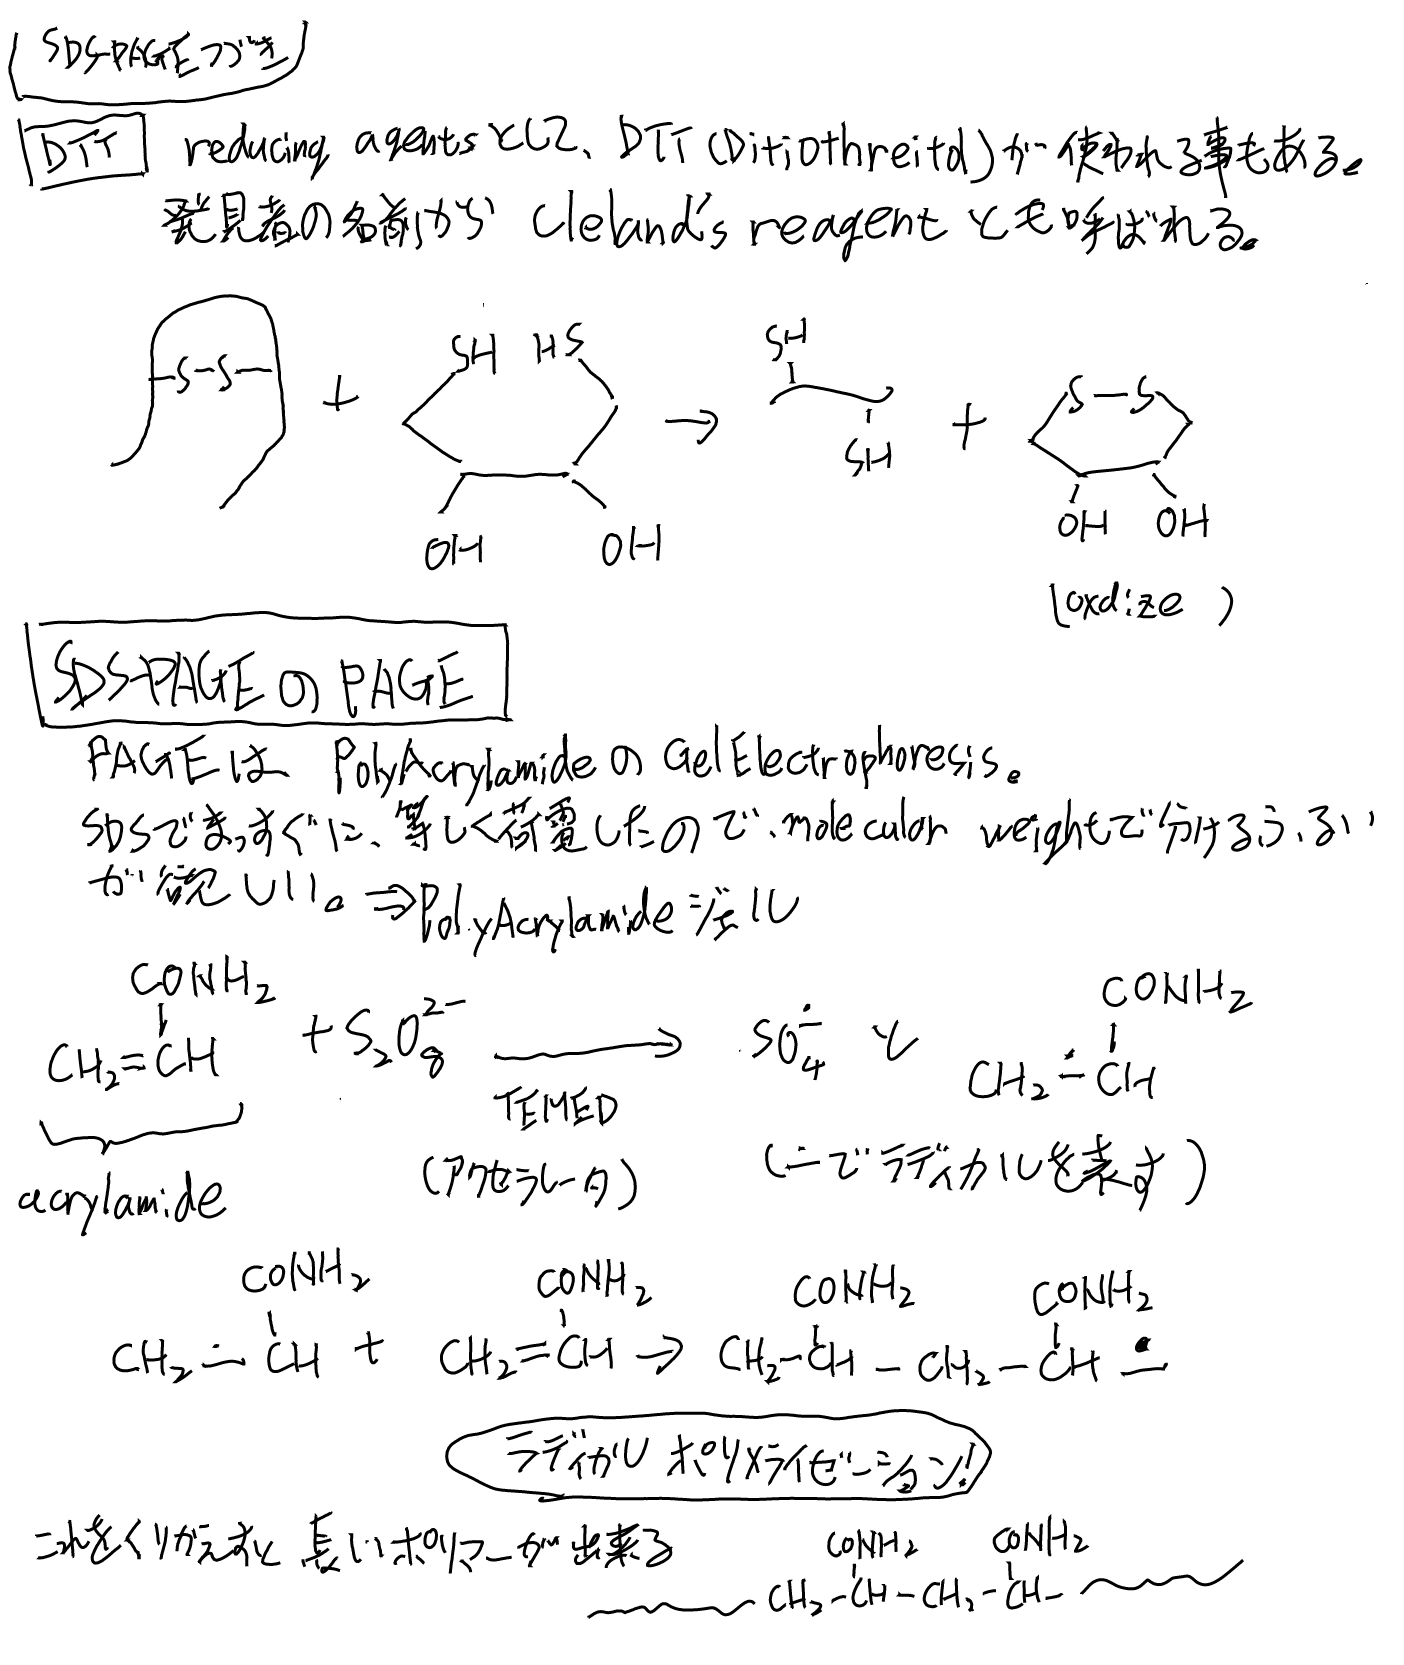 SDS-PAGEつづき
DTT reducing agentsとして、DTT(Ditiothreitol)が使われる事もある。
発見者の名前から Cleland's reagent とも呼ばれる。
-S-S- + SH HS OH OH → SH SH + S-S OH OH
(oxdize )
SDS-PAGEのPAGE
PAGEは PolyAcrylamideの GelElectrophoresis。
SDSでまっすぐに、等しく荷電したので、molecular weightで分けるふるい
が欲しい。⇒PolyAcrylamideジェル
CONH2 CONH2
CH2=CH + S2O8^2- → SO4^-・ と CH2 ∸ CH
TEMED
(アクセラレータ) (∸でラディカルを表す)
acrylamide
CONH2 CONH2 CONH2 CONH2
CH2 ∸ CH + CH2=CH → CH2-CH - CH2 - CH ∸
ラディカル ポリメライゼーション!
これをくりかえすと 長いポリマーが出来る
CONH2 CONH2
CH2-CH-CH2-CH-